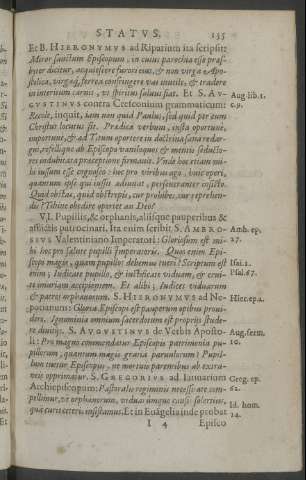 STATVS. 135
Et B. HIERONYMVS ad Riparium ita scripsit:
Miror sanctum Episcopum, in cuius parochia esse pras-
byter dicitur, acquiescere furori eius, & non virga Apo-
stolica, virgaq́; ferrea confringere vas inutile, & tradere
in interitum carnis, vt spiritus saluus fiat. Et S. AV-
GVSTINVS contra Cresconium grammaticum: Aug. lib. 1.
Recole, inquit, iam non quid Paulus, sed quid per eum c. 9.
Christus locutus sit. Prædica verbum, insta oportunè,
importunè, & ad Titum oportere in doctrina sana redar-
gui, refellique ab Episcopo vaniloquos & mentis seducto-
res indubitata præceptione firmauit. Vnde hoc etiam mi-
hi iussum esse cognosco: hoc pro viribus ago, huic operi,
quantum ipse qui iussit adiuuat, perseueranter insisto.
Quid obstas, quid obstrepis, cur prohibes, cur reprehen-
dis? Tibine obedire oportet an Deo?
VI. Pupillis, & orphanis, aliisque pauperibus &
afflictis patrocinari. Ita enim scribit S. AMBRO- Amb. ep.
SIVS Valentiniano Imperatori: Gloriosum est mi- 27.
hi hoc pro salute pupilli Imperatoris. Quos enim Epi-
scopi magis, quam pupillos debemus tueri? Scriptum est Isai. 1.
enim; Iudicate pupillo, & iustificate viduam, & erui- Psal. 67.
te iniuriam accipientem. Et alibi; Iudices viduarum
& patres orphanorum. S. HIERONYMVS ad Ne- Hier. ep. 2.
potianum: Gloria Episcopi est pauperum opibus proui-
dere. Ignominia omnium sacerdotum est propriis stude-
re diuitiis. S. AVGVSTINVS de Verbis Aposto- Aug. serm.
li: Pro magno commendatur Episcopis patrimonia pu- 10.
pillorum, quantum magis gratia paruulorum? Pupil-
lum tuetur Episcopus, ne mortuis parentibus ab extra-
neis opprimatur. S. GREGORIVS ad Ianuarium Greg. ep.
Archiepiscopum: Pastoralis regiminis necessitate com- 62.
pellimur, vt orphanorum, viduarúmque causis solertius,
qua cura ceteris insistamus. Et in Euãgelia inde probat Id. hom.
I 4 Episco 14.